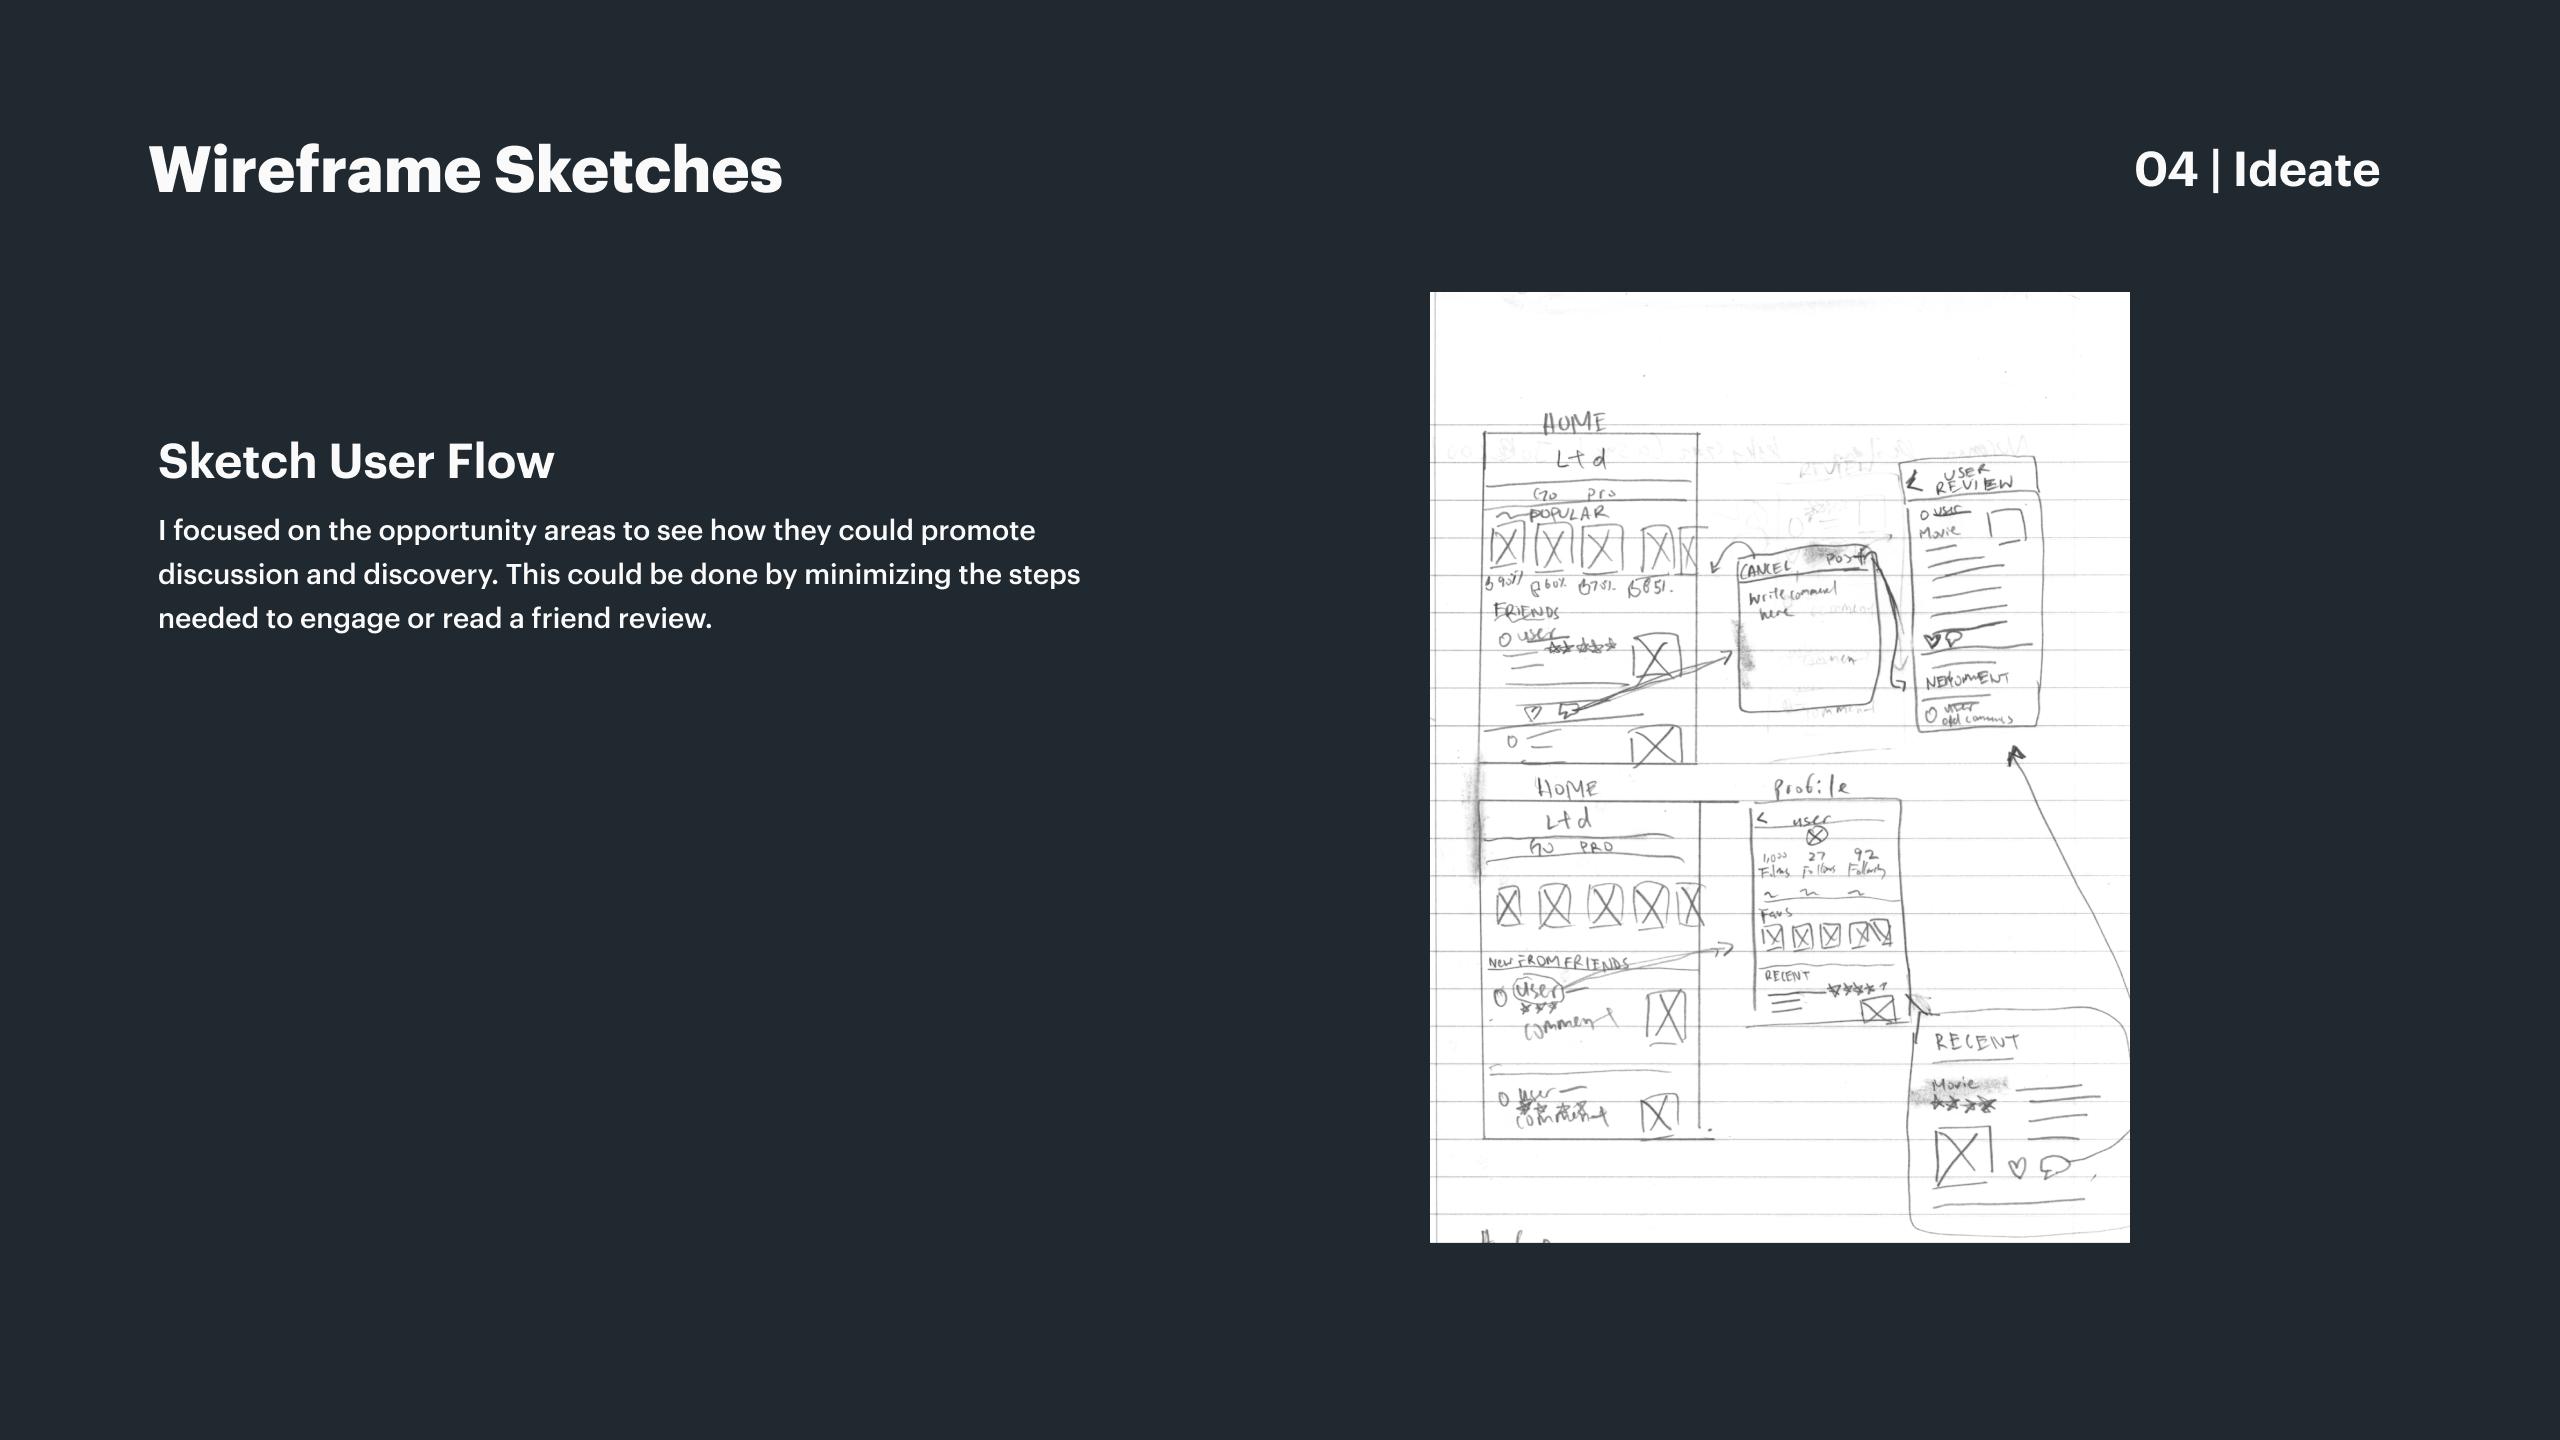 Wireframe Sketches
04 | Ideate
Sketch User Flow
I focused on the opportunity areas to see how they could promote
discussion and discovery. This could be done by minimizing the steps
needed to engage or read a friend review.
HOME
Ltd
Go Pro
POPULAR
90% 60% 70% 85%
FRIENDS
user
CANCEL Post
Write comment
here
USER
REVIEW
user
Movie
user
HOME
Ltd
GO PRO
New FROM FRIENDS
user
comment
user
comment
Profile
< user
1,000 27 92
Films
Favs
RECENT
RECENT
Movie